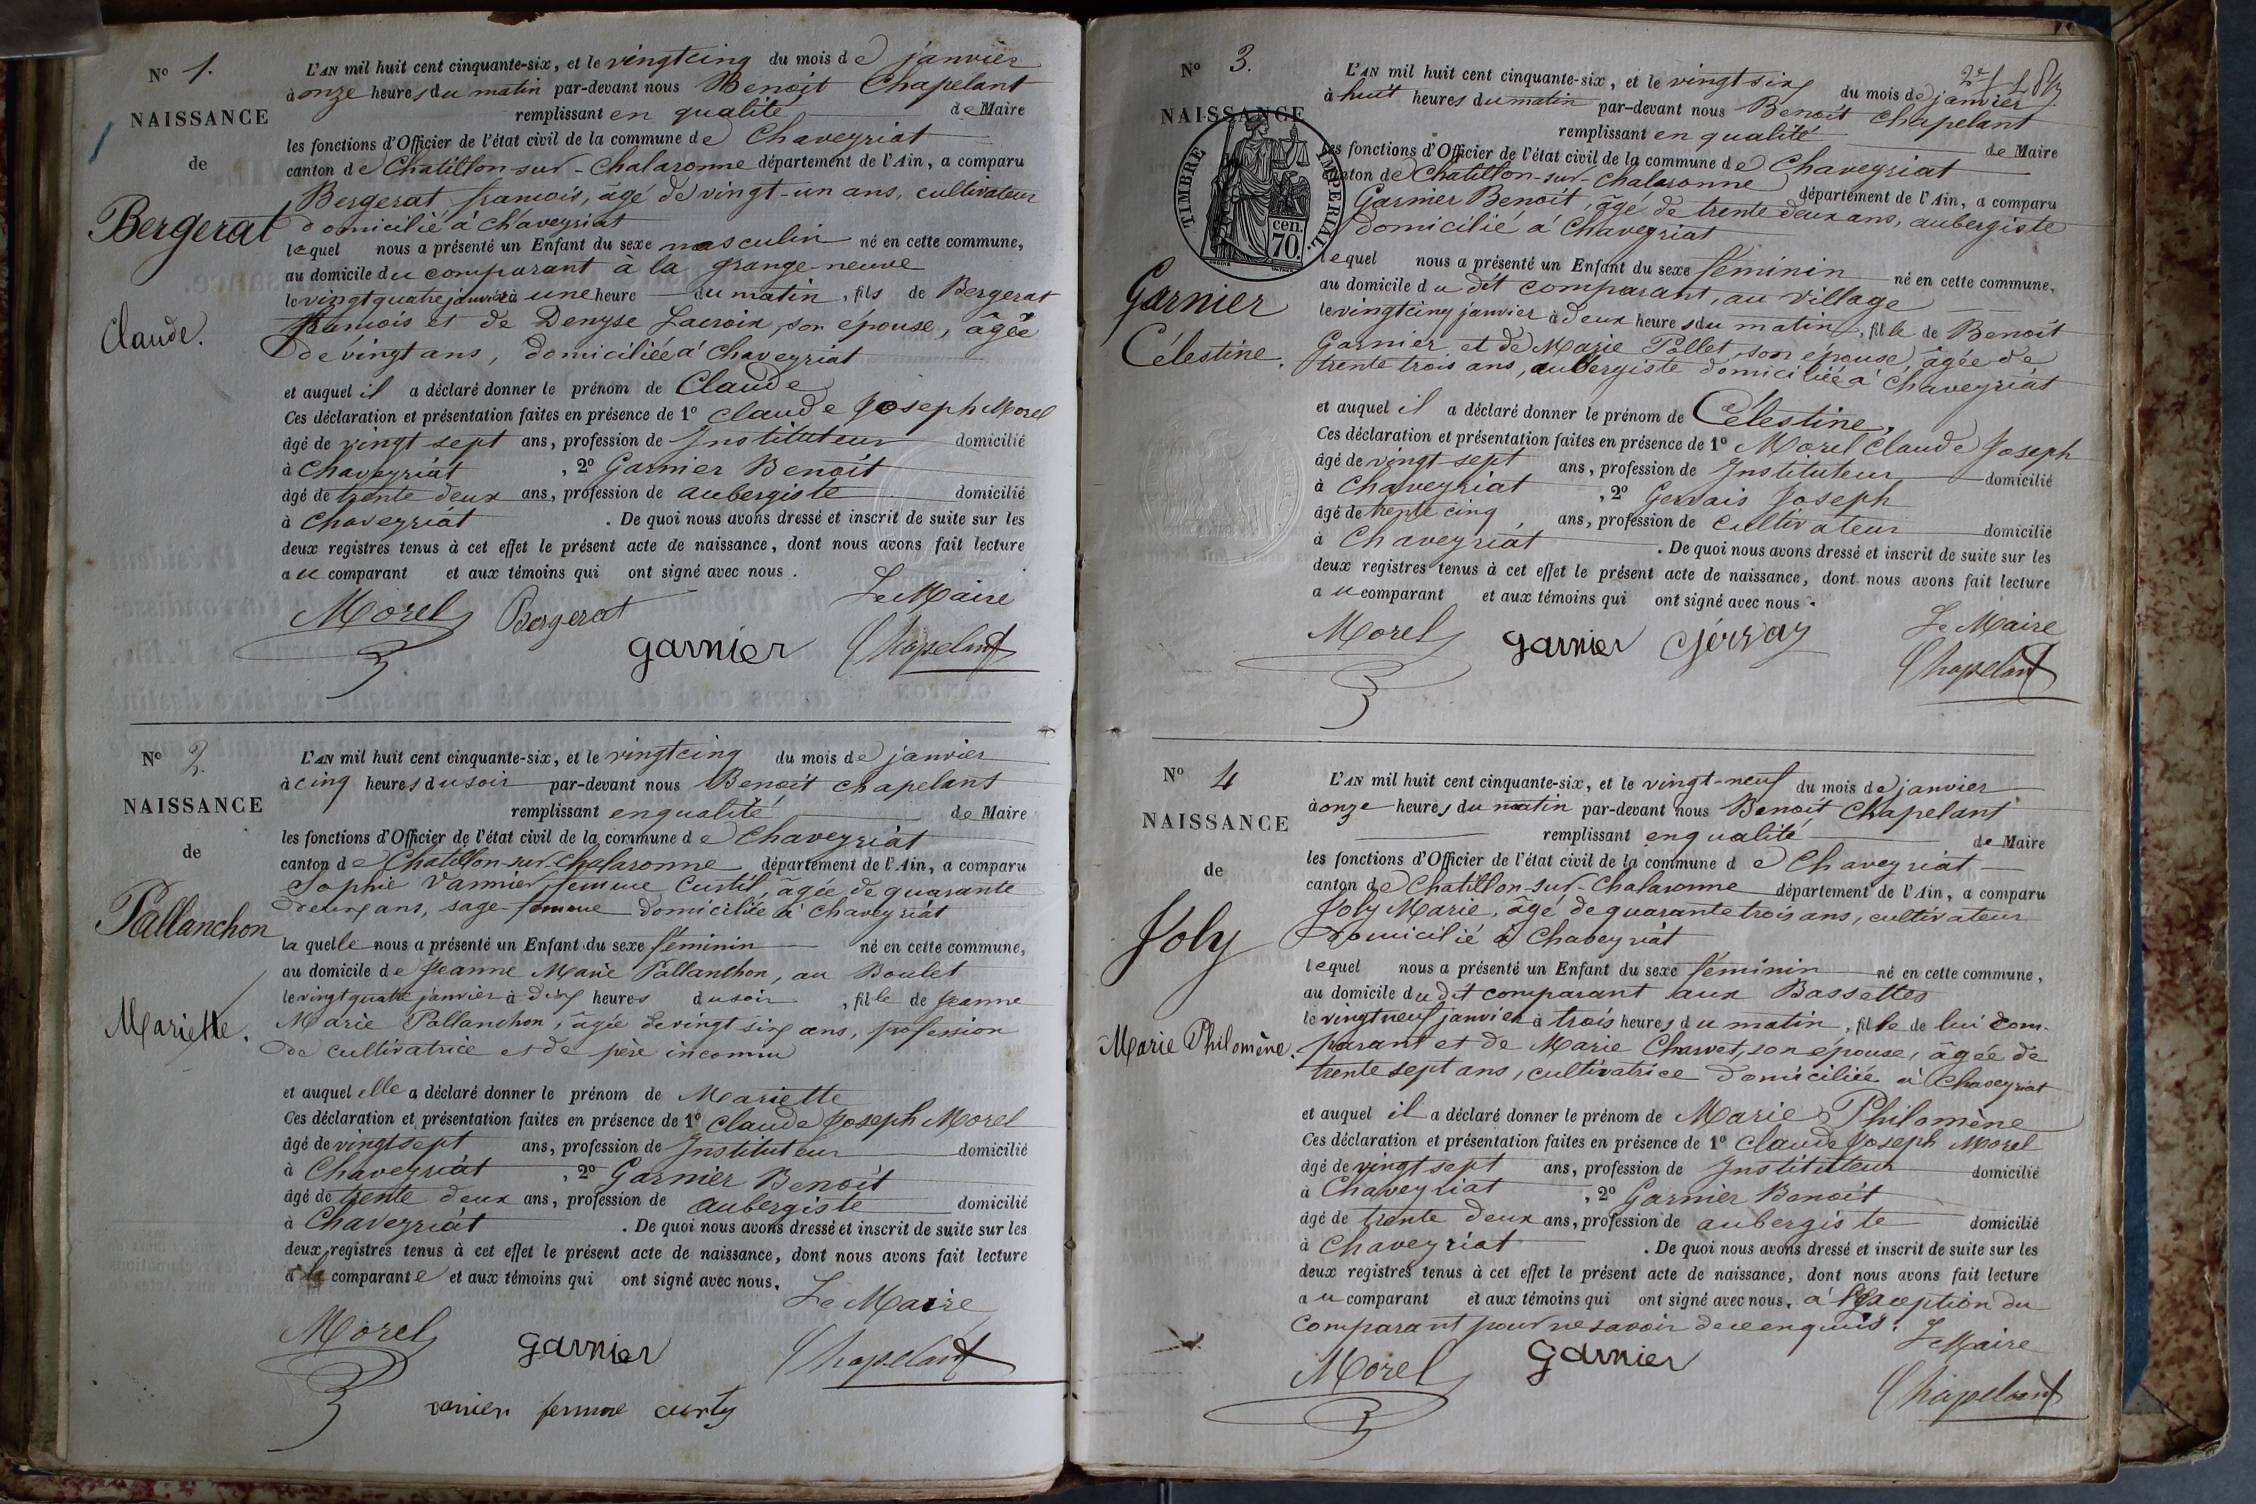 N° 1.
NAISSANCE
de
Bergerat
Claude.
L'AN mil huit cent cinquante-six, et le vingt cinq du mois de janvier
à onze heures du matin par-devant nous Benoit Chapelant
remplissant en qualité de Maire
les fonctions d'Officier de l'état civil de la commune de Chaveyriat
canton de Chatillon-sur-Chalaronne département de l'Ain, a comparu
Bergerat francois, âgé de vingt-un ans, cultivateur
domicilié à Chaveyriat
lequel nous a présenté un Enfant du sexe masculin né en cette commune,
au domicile du comparant à la grange neuve
le vingt quatre janvier à une heure du matin, fils de Bergerat
francois et de Denyse Lacroix, son épouse, âgée
de vingt ans, domiciliée à Chaveyriat
et auquel il a déclaré donner le prénom de Claude
Ces déclaration et présentation faites en présence de 1° Claude Joseph Morel
âgé de vingt sept ans, profession de Instituteur domicilié
à Chaveyriat, 2° Garnier Benoit
âgé de trente deux ans, profession de aubergiste domicilié
à Chaveyriat. De quoi nous avons dressé et inscrit de suite sur les
deux registres tenus à cet effet le présent acte de naissance, dont nous avons fait lecture
au comparant et aux témoins qui ont signé avec nous.
Le Maire
Morel Bergerat
garnier Chapelant
N° 2.
NAISSANCE
de
Pallanchon
Mariette.
L'AN mil huit cent cinquante-six, et le vingt cinq du mois de janvier
à cinq heures du soir par-devant nous Benoit Chapelant
remplissant en qualité de Maire
les fonctions d'Officier de l'état civil de la commune de Chaveyriat
canton de Chatillon-sur-Chalaronne département de l'Ain, a comparu
Sophie Vannier femme Curtil, âgée de quarante
deux ans, sage-femme domiciliée à Chaveyriat
la quelle nous a présenté un Enfant du sexe féminin né en cette commune,
au domicile de Jeanne Marie Pallanchon, au Boulet
le vingt quatre janvier à dix heures du soir, fille de Jeanne
Marie Pallanchon, âgée de vingt six ans, profession
de cultivatrice et de père inconnu
et auquel elle a déclaré donner le prénom de Mariette
Ces déclaration et présentation faites en présence de 1° Claude Joseph Morel
âgé de vingt sept ans, profession de Instituteur domicilié
à Chaveyriat, 2° Garnier Benoit
âgé de trente deux ans, profession de aubergiste domicilié
à Chaveyriat. De quoi nous avons dressé et inscrit de suite sur les
deux registres tenus à cet effet le présent acte de naissance, dont nous avons fait lecture
à la comparante et aux témoins qui ont signé avec nous.
Le Maire
Morel garnier Chapelant
vanier femme curty
N° 3.
NAISSANCE
TIMBRE IMPERIAL.
70. cen.
Garnier
Célestine.
L'AN mil huit cent cinquante-six, et le vingt six du mois de janvier
à huit heures du matin par-devant nous Benoit Chapelant
remplissant en qualité de Maire
les fonctions d'Officier de l'état civil de la commune de Chaveyriat
canton de Chatillon-sur-Chalaronne département de l'Ain, a comparu
Garnier Benoit, âgé de trente deux ans, aubergiste
domicilié à Chaveyriat
lequel nous a présenté un Enfant du sexe féminin né en cette commune,
au domicile du dit comparant, au village
le vingt cinq janvier à deux heures du matin, fille de Benoit
Garnier et de Marie Pollet, son épouse, âgée de
trente trois ans, aubergiste domiciliée à Chaveyriat
et auquel il a déclaré donner le prénom de Célestine,
Ces déclaration et présentation faites en présence de 1° Morel Claude Joseph
âgé de vingt sept ans, profession de Instituteur domicilié
à Chaveyriat, 2° Gervais Joseph
âgé de trente cinq ans, profession de cultivateur domicilié
à Chaveyriat. De quoi nous avons dressé et inscrit de suite sur les
deux registres tenus à cet effet le présent acte de naissance, dont nous avons fait lecture
au comparant et aux témoins qui ont signé avec nous.
Le Maire
Morel garnier Gérvay Chapelant
N° 4
NAISSANCE
de
Joly
Marie Philomène.
L'AN mil huit cent cinquante-six, et le vingt-neuf du mois de janvier
à onze heures du matin par-devant nous Benoit Chapelant
remplissant en qualité de Maire
les fonctions d'Officier de l'état civil de la commune de Chaveyriat
canton de Chatillon-sur-Chalaronne département de l'Ain, a comparu
Joly Marie, âgé de quarante trois ans, cultivateur
domicilié à Chaveyriat
lequel nous a présenté un Enfant du sexe féminin né en cette commune,
au domicile du dit comparant aux Bassettes
le vingt neuf janvier à trois heures du matin, fille de lui com-
parant et de Marie Charvet, son épouse, âgée de
trente sept ans, cultivatrice domiciliée à Chaveyriat
et auquel il a déclaré donner le prénom de Marie Philomène
Ces déclaration et présentation faites en présence de 1° Claude Joseph Morel
âgé de vingt sept ans, profession de Instituteur domicilié
à Chaveyriat, 2° Garnier Benoit
âgé de trente deux ans, profession de aubergiste domicilié
à Chaveyriat. De quoi nous avons dressé et inscrit de suite sur les
deux registres tenus à cet effet le présent acte de naissance, dont nous avons fait lecture
au comparant et aux témoins qui ont signé avec nous, à l'exception du
comparant pour ne savoir de ce enquis.
Le Maire
Morel garnier Chapelant